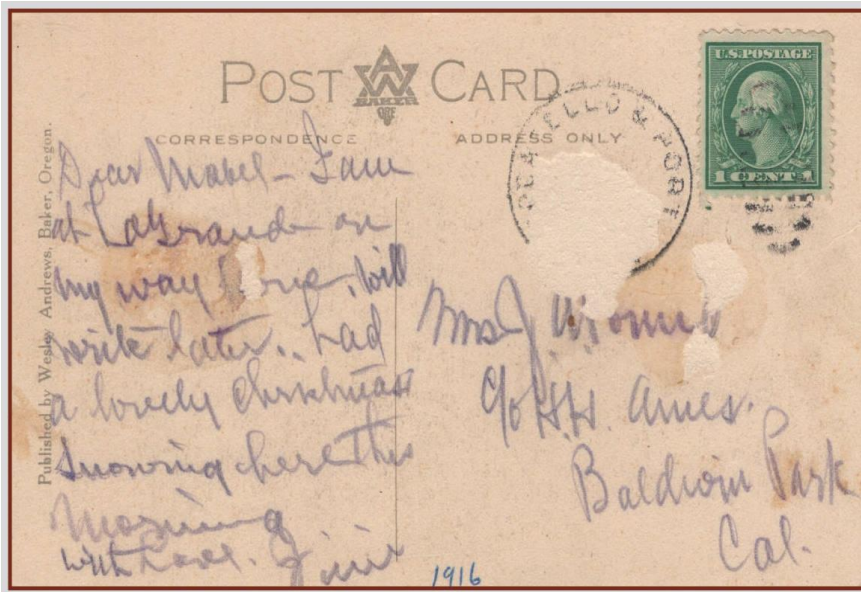 POST CARD
AW
BAKER
ORE
CORRESPONDENCE
ADDRESS ONLY
U.S. POSTAGE
1 CENT 1
ELLO & PORT
Published by Wesley Andrews, Baker, Oregon.
Dear Mabel - I am
at LaGrande on
my way home, will
write later.. had
a lovely christmas
snowing here this
morning
with love.
Mrs J.
c/o H.H. Ames.
Baldwin Park
Cal.
1916